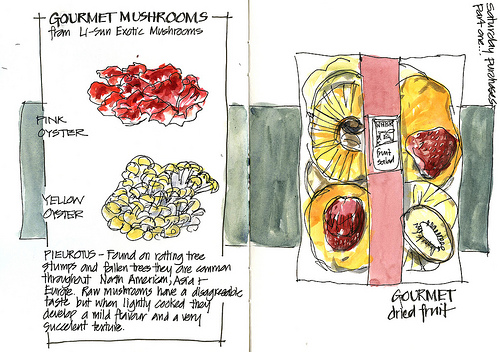 GOURMET MUSHROOMS
from Li-Sun Exotic Mushrooms
PINK
OYSTER
YELLOW
OYSTER
PLEUROTUS - Found on rotting tree
stumps and fallen trees they are common
throughout North American, Asia +
Europe. Raw mushrooms have a disagreeable
taste but when lightly cooked they
develop a mild flavour and a very
succulent texture.
Saturday Purchases
Part one...
fruit
salad
GOURMET
dried fruit